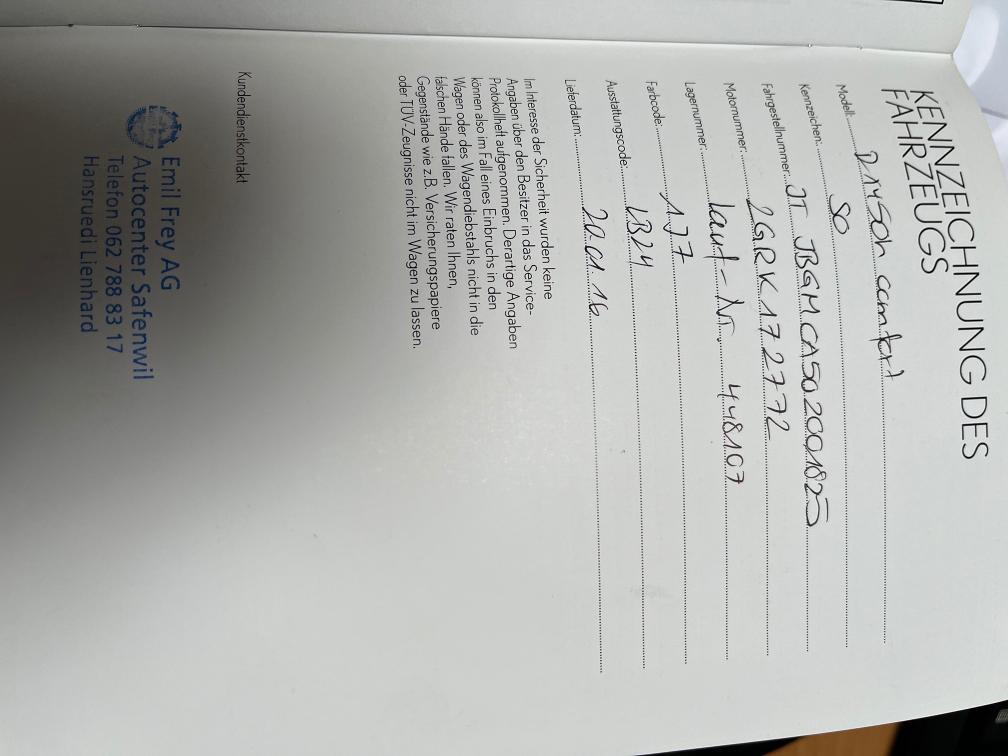 KENNZEICHNUNG DES
FAHRZEUGS
Modell: comfort
Kennzeichen: SO
Fahrgestellnummer: JTJBGMCA502001825
Motornummer: 2GRK172772
Lagernummer: lauf-Nr. 448107
Farbcode: 1J7
Ausstattungscode: LB24
Lieferdatum: 20.01.16
Im Interesse der Sicherheit wurden keine
Angaben über den Besitzer in das Service-
Protokollheft aufgenommen. Derartige Angaben
können also im Fall eines Einbruchs in den
Wagen oder des Wagendiebstahls nicht in die
falschen Hände fallen. Wir raten Ihnen,
Gegenstände wie z.B. Versicherungspapiere
oder TÜV-Zeugnisse nicht im Wagen zu lassen.
Kundendienstkontakt
Emil Frey AG
Autocenter Safenwil
Telefon 062 788 83 17
Hansruedi Lienhard